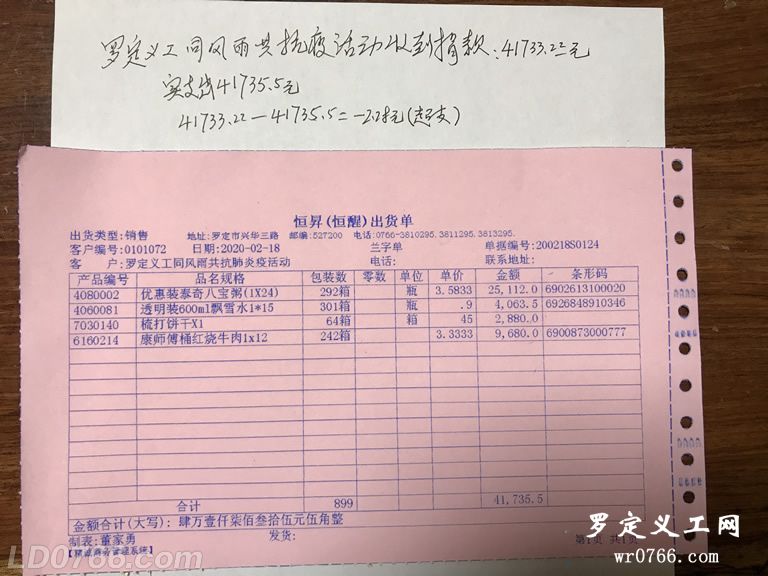 罗定义工同风雨共抗疫活动收到捐款:41733.22元
实支出41735.5元
41733.22-41735.5=-2.28元(超支)
恒昇(恒醒)出货单
出货类型:销售 地址:罗定市兴华三路 邮编:527200 电话:0766-3810295.3811295.3813295.
客户编号:0101072 日期:2020-02-18 兰字单 单据编号:200218S0124
客 户:罗定义工同风雨共抗肺炎疫活动 电话: 联系地址:
产品编号 品名规格 包装数 零数 单位 单价 金额 条形码
4080002 优惠装泰奇八宝粥(1X24) 292箱 瓶 3.5833 25,112.0 6902613100020
4060081 透明装600ml飘雪水1*15 301箱 瓶 .9 4,063.5 6926848910346
7030140 梳打饼干X1 64箱 箱 45 2,880.0
6160214 康师傅桶红烧牛肉1x12 242箱 3.3333 9,680.0 6900873000777
合计 899 41,735.5
金额合计(大写): 肆万壹仟柒佰叁拾伍元伍角整
制表:董家勇 发货: 第1页 共1页
LD0766.com
罗定义工网
wr0766.com